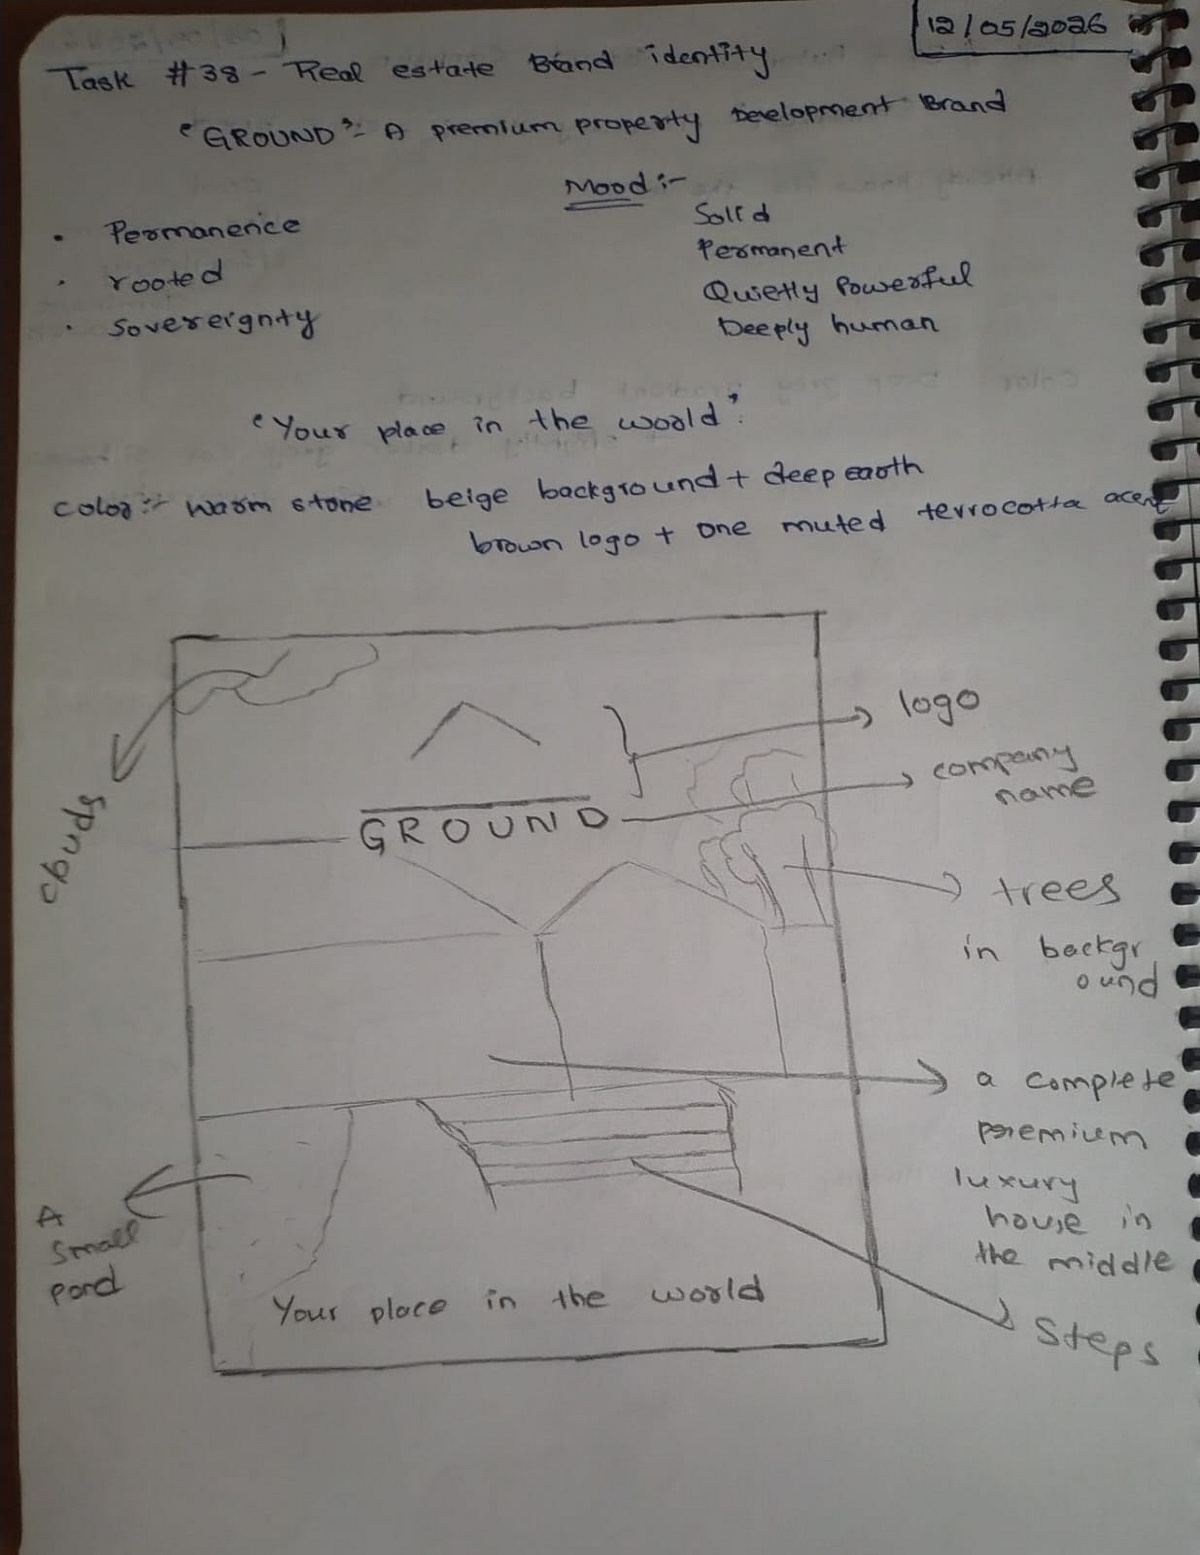 12/05/2026
Task #38 - Real estate Brand identity
"GROUND" :- A premium property Development Brand
Mood :-
• Permanence
• rooted
• Sovereignty
Solid
Permanent
Quietly Powerful
Deeply human
"Your place in the world".
Color :- Warm stone beige background + deep earth
brown logo + one muted terrocotta acent
logo
company
name
clouds
GROUND
trees
in backgr
ound
a complete
premium
luxury
house in
the middle
A
small
pond
Your place in the world
Steps